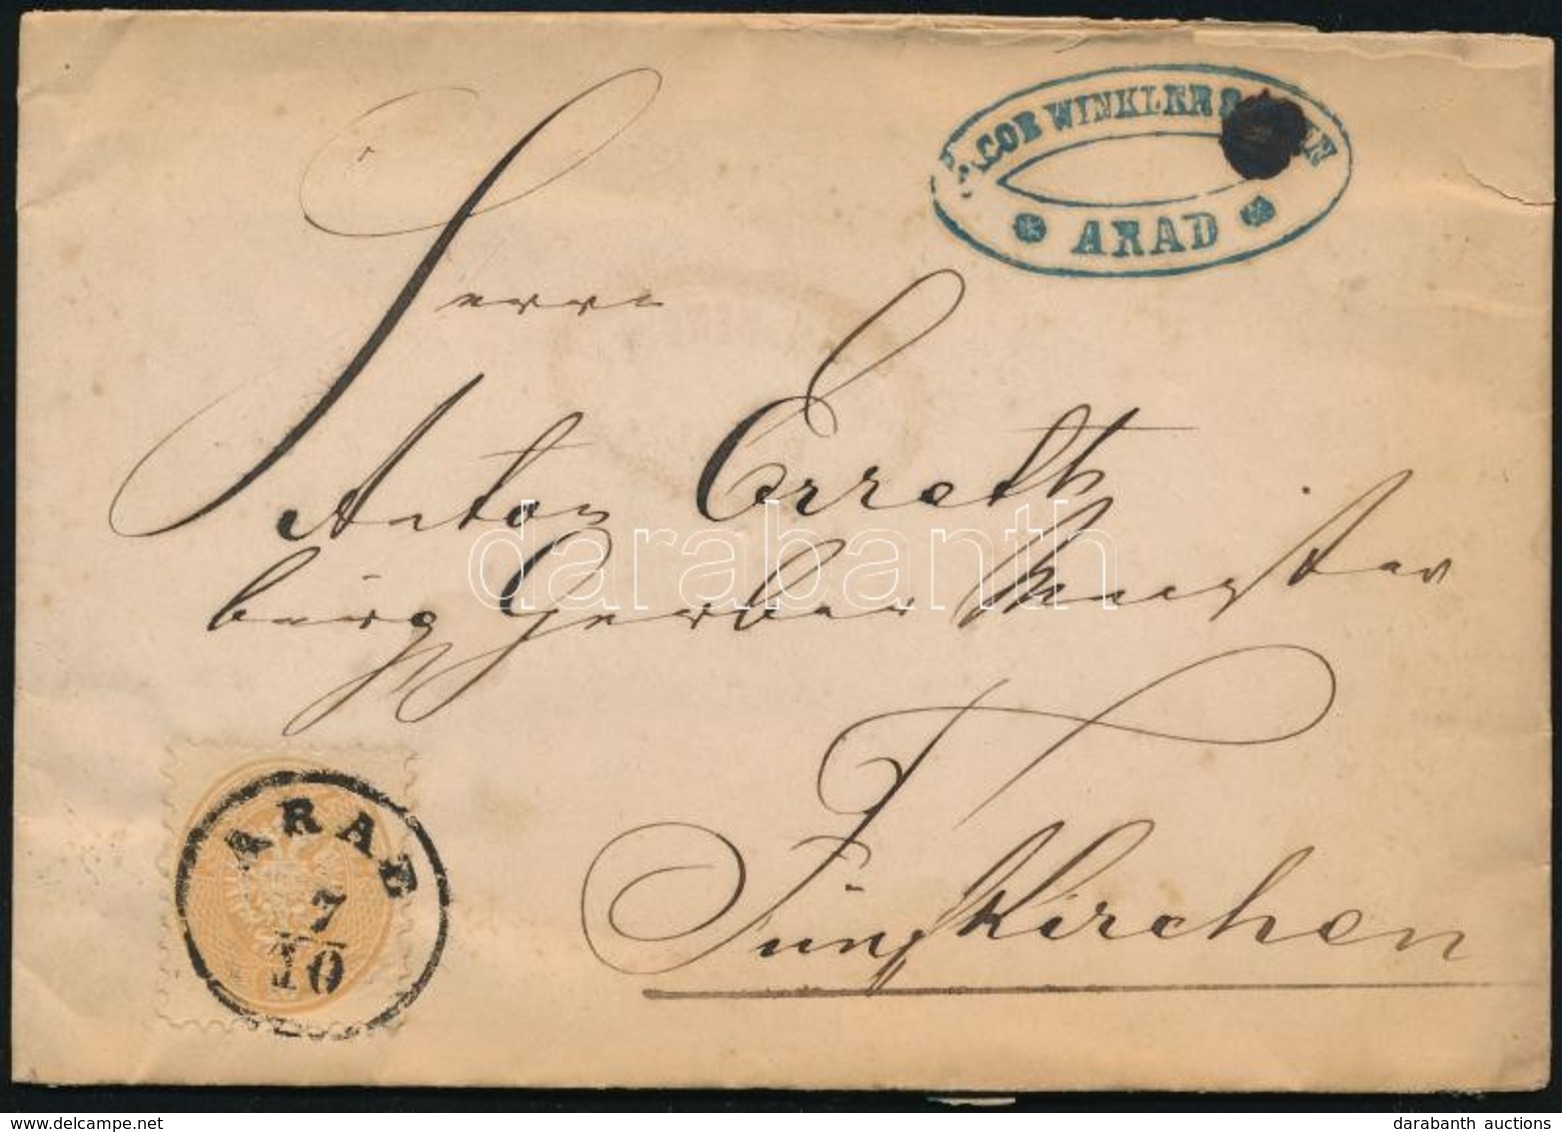 JACOB WINKLER SÖHNE
ARAD
Herrn
Anton Erreth
bürg Gerber Meister
Fünfkirchen
ARAD
7
10
darabanth
www.delcampe.net
darabanth auctions